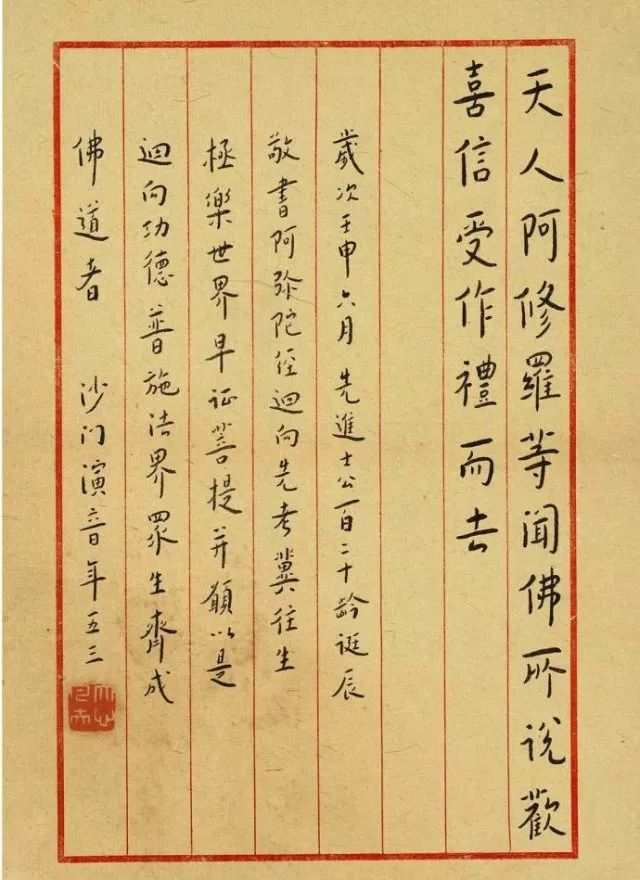 天人阿修羅等聞佛所說歡
喜信受作禮而去
歲次壬申六月先進士公一百二十齡誕辰
敬書阿弥陀经迴向先考冀往生
極樂世界早证菩提并願以是
迴向功德普施法界眾生齊成
佛道者 沙门演音年五三